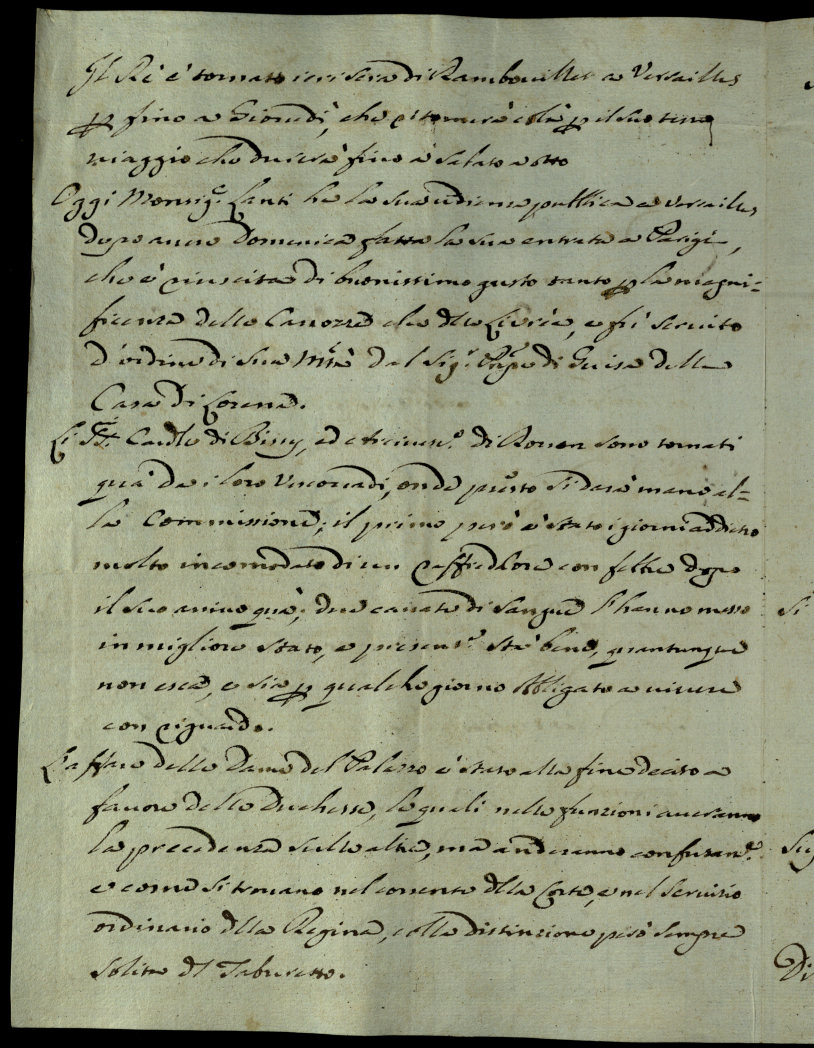 Il Rè è tornato ieri sera di Rambouillet a Versailles
p fino a Giovedì, che ritornerà colà p il suo terzo
viaggio che durerà fino a sabato a otto
Oggi Monsig.r Lanti ha la sua udienza pubblica a Versailles
dopo avere Domenica fatta la sua entrata a Parigi,
che è riuscita di buonissimo gusto tanto p la magni=
ficenza delle Carrozze che dlle Livrèe, e fù servito
d'ordine di Sua Mtà dal Sig.r Pnpe di Guisa della
Casa di Lorena.
Li SS.ri Cardle di Bissy, ed Arcivesc.o di Roven sono tornati
quà da i loro Vescovadi, onde presto si darà mano al=
la Commissione; il primo però è stato i giorni addietro
molto incomodato di un raffreddore con febbre dopo
il suo arrivo quà; due cavate di sangue l'hanno messo
in migliore stato, e presen.te stà bene, quantunque
non esca, e sia p qualche giorno obbligato a vivere
con riguardo.
L'affare delle Dame del Palazzo è stato alla fine deciso a
favore delle Duchesse, le quali nelle funzioni averanno
la precedenza sulle altre, ma anderanno confusam.te
e come si trovano nel corrente dlla Corte, e nel servizio
ordinario dlla Regina, colla distinzione però sempre
solita dl Taburetto.
Si
Di